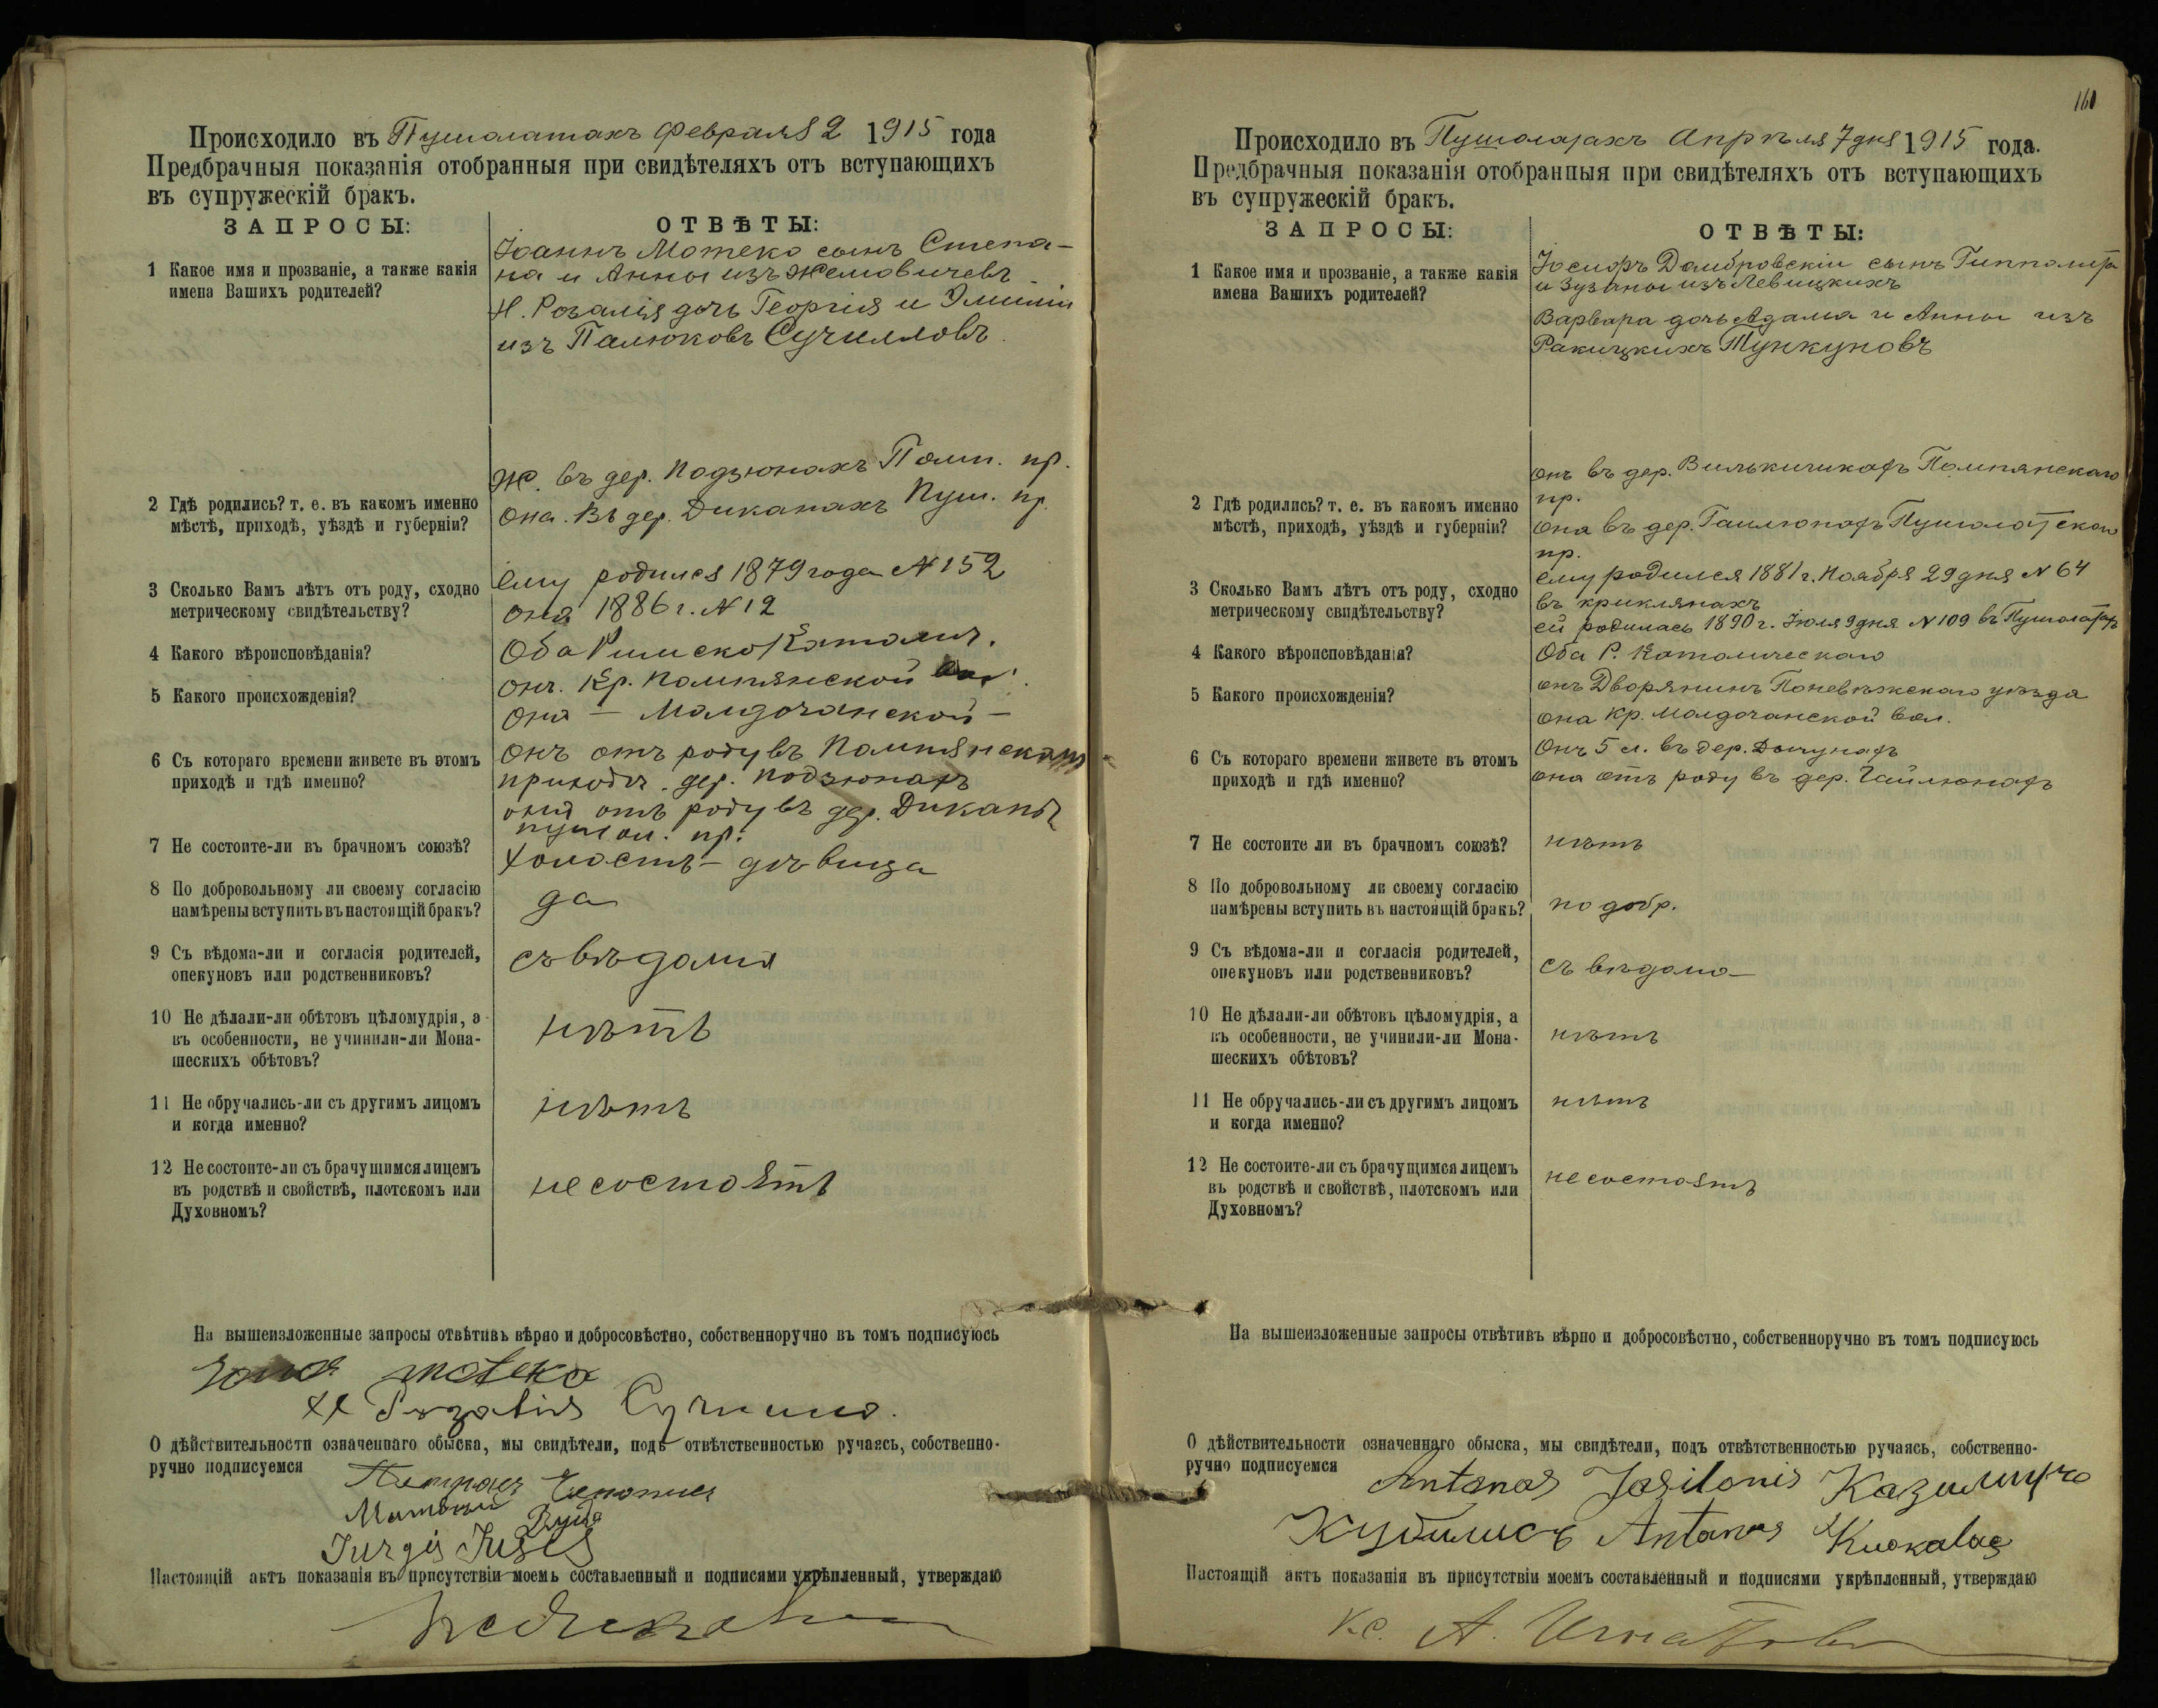 Происходило въ Пушолатахъ февраля 2 1915 года
Предбрачныя показанія отобранныя при свидѣтеляхъ отъ вступающихъ
въ супружескій бракъ.
ЗАПРОСЫ: ОТВѢТЫ:
1 Какое имя и прозваніе, а также какія
имена Вашихъ родителей?
Іоаннъ Мотеко сынъ Степа-
на и Анны изъ
Н. Розалія дочь Георгія и Эмиліи
изъ Палюковъ Сучилловъ.
2 Гдѣ родились? т. е. въ какомъ именно
мѣстѣ, приходѣ, уѣздѣ и губерніи?
Ж. въ дер. Подзюнахъ Помп. пр.
Она. Въ дер. Диканахъ Пуш. пр.
3 Сколько Вамъ лѣтъ отъ роду, сходно
метрическому свидѣтельству?
ему родился 1879 года N 152
она 1886 г. N 12
4 Какого вѣроисповѣданія?
Оба Римско Католич.
5 Какого происхожденія?
Онъ. Кр. Помпянской
Она –
6 Съ котораго времени живете въ этомъ
приходѣ и гдѣ именно?
Онъ отъ роду въ Помпянскомъ
приходѣ. дер. Подзюнахъ
она отъ роду въ дер. Диканы
пушол. пр.
7 Не состоите-ли въ брачномъ союзѣ?
холостъ – дѣвица
8 По добровольному ли своему согласію
намѣрены вступить въ настоящій бракъ?
да
9 Съ вѣдома-ли и согласія родителей,
опекуновъ или родственниковъ?
съ вѣдома
10 Не дѣлали-ли обѣтовъ цѣломудрія, а
въ особенности, не учинили-ли Мона-
шескихъ обѣтовъ?
нѣтъ
11 Не обручались-ли съ другимъ лицомъ
и когда именно?
нѣтъ
12 Не состоите-ли съ брачущимся лицемъ
въ родствѣ и свойствѣ, плотскомъ или
Духовномъ?
не состоятъ
На вышеизложенные запросы отвѣтивъ вѣрно и добросовѣстно, собственноручно въ томъ подписуюсь
О дѣйствительности означеннаго обыска, мы свидѣтели, подъ отвѣтственностью ручаясь, собственно-
ручно подписуемся
Jurgis
Настоящій актъ показанія въ присутствіи моемъ составленный и подписями укрѣпленный, утверждаю
160
Происходило въ Пушолатахъ Апрѣля 7 дня 1915 года.
Предбрачныя показанія отобранныя при свидѣтеляхъ отъ вступающихъ
въ супружескій бракъ.
ЗАПРОСЫ: ОТВѢТЫ:
1 Какое имя и прозваніе, а также какія
имена Вашихъ родителей?
Іосифъ Домбровскій сынъ Гипполита
и Зузанны изъ Левицкихъ
Варвара дочь Адама и Анны изъ
Ракицкихъ Тункуновъ
2 Гдѣ родились? т. е. въ какомъ именно
мѣстѣ, приходѣ, уѣздѣ и губерніи?
онъ въ дер. Помпянскаго
пр.
она въ дер. Гайлюнахъ Пушолатскаго
пр.
3 Сколько Вамъ лѣтъ отъ роду, сходно
метрическому свидѣтельству?
ему родился 1881 г. Ноября 29 дня N 64
въ криклянахъ
ей родилась 1890 г. Іюля 9 дня N 109 въ Пушолатахъ
4 Какого вѣроисповѣданія?
Оба Р. Католическаго
5 Какого происхожденія?
онъ Дворянинъ Поневѣжскаго уѣзда
она Кр. вол.
6 Съ котораго времени живете въ этомъ
приходѣ и гдѣ именно?
Онъ 5 л. въ дер.
она отъ роду въ дер. Гайлюнахъ
7 Не состоите ли въ брачномъ союзѣ?
нѣтъ
8 По добровольному ли своему согласію
намѣрены вступить въ настоящій бракъ?
по добр.
9 Съ вѣдома-ли и согласія родителей,
опекуновъ или родственниковъ?
съ вѣдома
10 Не дѣлали-ли обѣтовъ цѣломудрія, а
въ особенности, не учинили-ли Мона-
шескихъ обѣтовъ?
нѣтъ
11 Не обручались-ли съ другимъ лицомъ
и когда именно?
нѣтъ
12 Не состоите-ли съ брачущимся лицемъ
въ родствѣ и свойствѣ, плотскомъ или
Духовномъ?
не состоятъ
На вышеизложенные запросы отвѣтивъ вѣрно и добросовѣстно, собственноручно въ томъ подписуюсь
О дѣйствительности означеннаго обыска, мы свидѣтели, подъ отвѣтственностью ручаясь, собственно-
ручно подписуемся
Antanas Jasilonis
Antanas
Настоящій актъ показанія въ присутствіи моемъ составленный и подписями укрѣпленный, утверждаю
Кс. А.